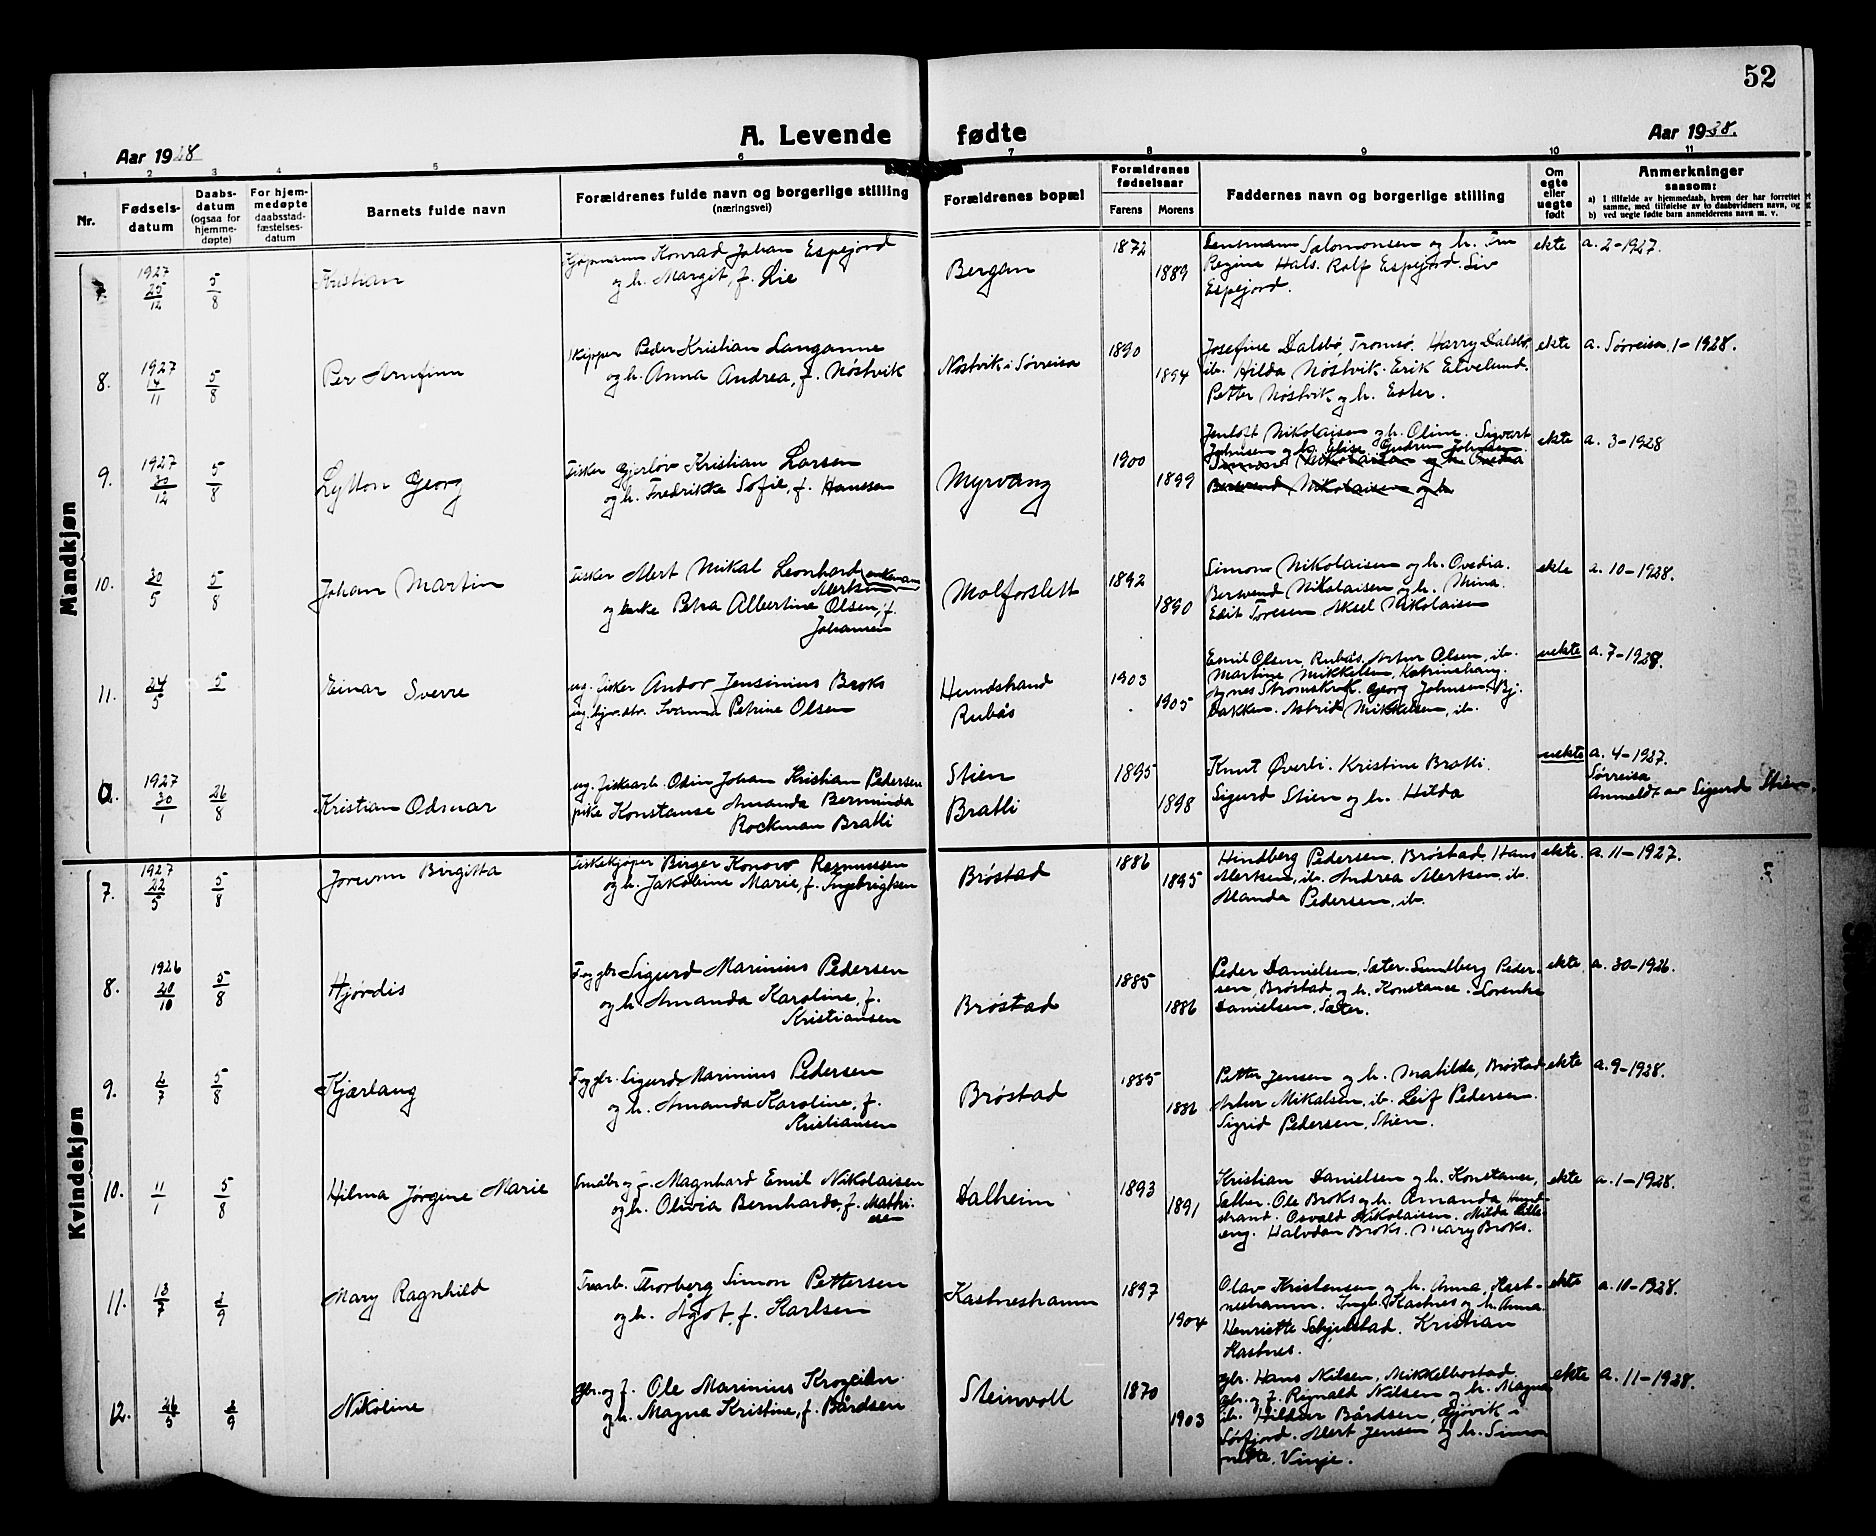 52
A. Levende fødte
Aar 1928
Aar 1928.
1 2 3 4 5 6 7 8 9 10 11
Nr.
Fødsels-
datum
Daabs-
datum
(ogsaa for
hjemme-
døpte)
For hjem-
medøpte
daabsstad-
fæstelses-
datum
Barnets fulde navn
Forældrenes fulde navn og borgerlige stilling
(næringsvei)
Forældrenes bopæl
Forældrenes
fødselsaar
Farens
Morens
Faddernes navn og borgerlige stilling
Om
egte
eller
uegte
født
Anmerkninger
saasom:
a) I tilfælde av hjemmedaab, hvem der har forrettet
samme, med tilføielse av to daabsvidners navn, og
b) ved uegte fødte barn anmelderens navn m. v.
Mandkjøn
7. 1927 25/12 5/8 Kristian
Kjøpmann Konrad Johan Espejord
og h. Margit, f. Lie
Bergan 1872 1889
Lensmann Salomonsen og h. Fru
Regine Hals. Rolf Espejord. Liv
Espejord.
ekte a. 2-1927.
8. 1927 14/11 5/8 Per Arnfinn
Skipper Peder Kristian Langanne
og h. Anna Andrea, f. Nøstvik
Nøstvik i Sørreisa 1890 1894
Josefine Dalsbø, Tromsø. Harry Dalsbø,
ib. Hilda Nøstvik. Erik Elvelund.
Petter Nøstvik og h. Ester.
ekte a. Sørreisa, 1-1928.
9. 1927 30/12 5/8 Lytton Georg
Fisker Gjerløv Kristian Larsen
og h. Fredrikke Sofie, f. Hanssen
Myrvang 1900 1899
Jenloft Nikolaisen og h. Oline. Sigvart
Johnsen og h. Elise. Gudrun Johnsen.
Simons Nikolaisen og h. Ovedia
Berwend Nikolaisen og h.
ekte a. 3-1928
10. 30/5 5/8 Johan Martin
Fisker Alert Mikal Leonhard enkem.
Alertsen
og enke Petra Albertine Olsen, f.
Johansen
Molforslett 1892 1890
Simons Nikolaisen og h. Ovedia.
Berwend Nikolaisen og h. Mina.
Edit Toresen Aksel Nikolaisen
ekte a. 10-1928.
11. 24/5 5 Einar Sverre
ug. fisker Andor Jensinius Broks
ug. hjv. dtr. Ivanna Petrine Olsen
Hundstrand
Rubås
1903 1905
Emil Olsen, Rubås. Artur Olsen, ib.
Martine Mikkelsen, Katrinehaug.
Agnes Strømskrok. Georg Johnsen, Bj.
bakken. Astrid Mikkelsen, ib.
uekte a. 7-1928.
a. 1927 30/1 26/8 Kristian Odsvar
ug. fiskearb. Odin Johan Kristian Pedersen
pike Konstanse Amanda Berminda
Rockman Bratli
Stien
Bratli
1895 1898
Knut Øverli. Kristine Bratli.
Sigurd Stien og h. Hilda
uekte a. 4-1927.
Sørreisa
Anmeldt av Sigurd Stien.
Kvindekjøn
7. 1927 22/5 5/8 Jorunn Birgitta
Fiskekjøper Birger Konow Rasmussen
og h. Jakobine Marie, f. Ingebrigtsen
Brøstad 1886 1895
Hindberg Pedersen, Brøstad. Hans
Alertsen, ib. Andrea Alertsen, ib.
Alanda Pedersen, ib.
ekte. a. 11-1927.
8. 1926 20/10 5/8 Hjørdis
F. og gbr. Sigurd Marinius Pedersen
og h. Amanda Karoline, f.
Kristiansen
Brøstad 1885 1886
Peder Danielsen, Sæter. Sundberg Peder-
sen, Brøstad og h. Konstanse. Lorentse
Danielsen, Sæter.
ekte a. 30-1926.
9. 2/7 5/8 Kjærlaug
F. og gbr. Sigurd Marinius Pedersen
og h. Amanda Karoline, f.
Kristiansen
Brøstad 1885 1886
Petter Jensen og h. Matilde, Brøstad
Artur Mikalsen, ib. Leif Pedersen.
Sigrid Pedersen, Stien.
ekte a. 9-1928.
10. 11/1 5/8 Hilma Jørgine Marie
Småbr. og f. Magnhard Emil Nikolaisen
og h. Olivia Bernharda, f. Mathi-
sen
Dalheim 1893 1891
Kristian Danielsen og h. Konstanse,
Sæther. Ole Broks og h. Amanda, Hund-
strand. Osvald Nikolaisen. Milda
eng. Halvdan Broks. Mary Broks.
ekte a. 1-1928.
11. 13/7 2/9 Mary Ragnhild
Trearb. Thorberg Simon Pettersen
og h. Ågot, f. Karlsen
Kastneshamn 1897 1904
Olav Kristensen og h. Anna, Kast-
neshamn. Ingb. Kastnes og h. Anna.
Henriette Schjelstad. Kristian
Kastnes.
ekte a. 10-1928.
12. 26/5 2/9 Nikoline
gbr. og f. Ole Marinius Krogeilen
og h. Magna Kristine, f. Bårdsen
Steinvoll 1870 1903
gbr. Hans Nilsen, Mikkelbostad,
gbr. og f. Rignald Nilsen og h. Magna
ib. Hildur Bårdsen, Gjøvik i
Sørfjord. Alert Jensen og h. Simo-
nette, Vinje.
ekte a. 11-1928.